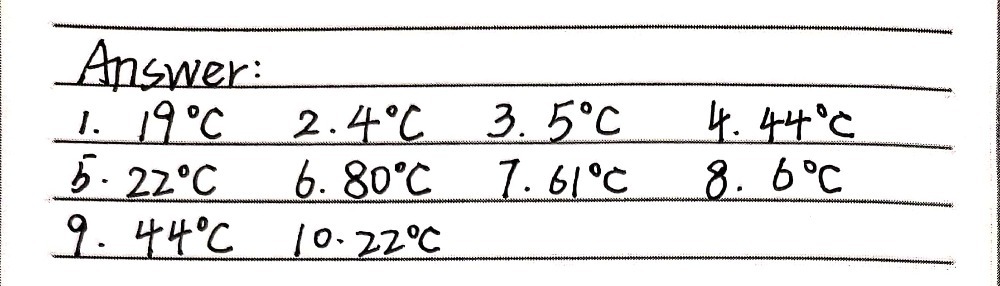 Answer:
1. 19°C 2. 4°C 3. 5°C 4. 44°C
5. 22°C 6. 80°C 7. 61°C 8. 6°C
9. 44°C 10. 22°C